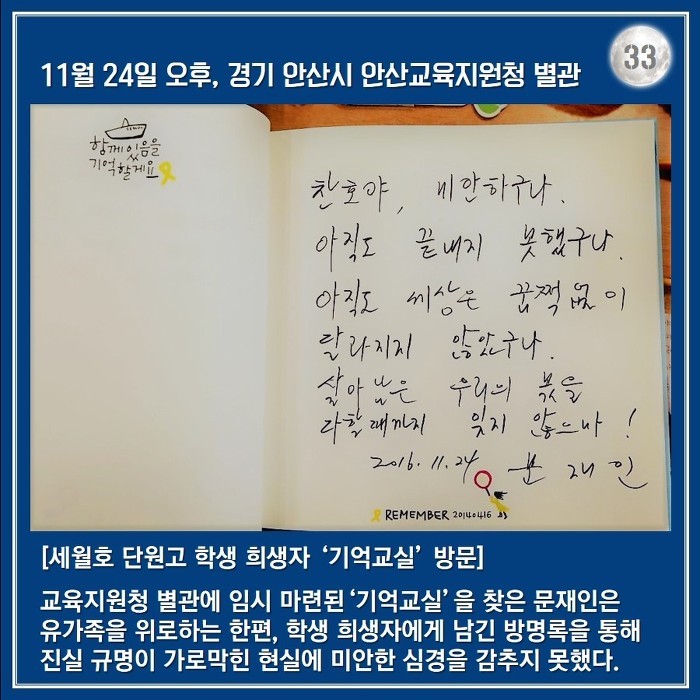 33
11월 24일 오후, 경기 안산시 안산교육지원청 별관
함께 있음을
기억할게요
찬호야, 미안하구나.
아직도 끝내지 못했구나.
아직도 세상은 꿈쩍없이
달라지지 않았구나.
살아남은 우리의 몫을
다할때까지 잊지 않으마!
2016.11.24 문재인
REMEMBER 20140416
[세월호 단원고 학생 희생자 ‘기억교실’ 방문]
교육지원청 별관에 임시 마련된 ‘기억교실’을 찾은 문재인은
유가족을 위로하는 한편, 학생 희생자에게 남긴 방명록을 통해
진실 규명이 가로막힌 현실에 미안한 심경을 감추지 못했다.